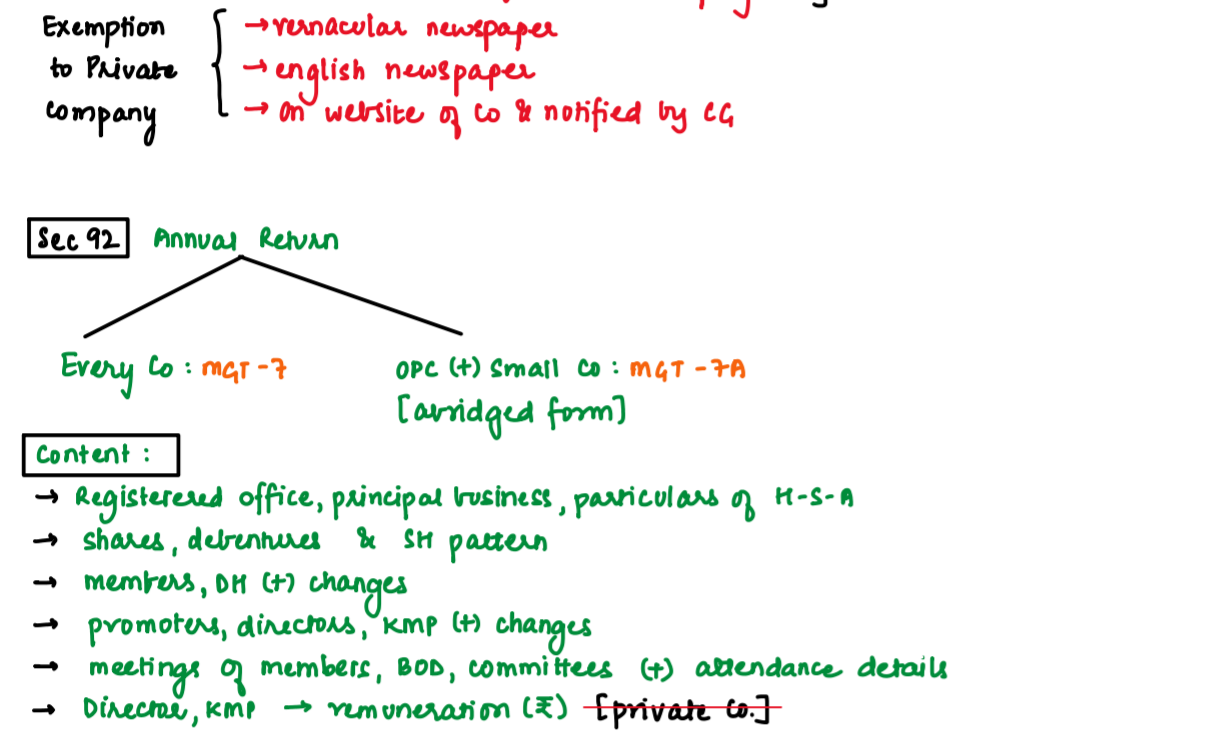 Exemption
to Private
company
→ vernacular newspaper
→ english newspaper
→ on website of Co & notified by CG
Sec 92 Annual Return
Every Co : MGT -7
OPC (+) Small Co : MGT -7A
[abridged form]
Content :
→ Registerered office, principal business, particulars of H-S-A
→ shares, debentures & SH pattern
→ members, DH (+) changes
→ promoters, directors, KMP (+) changes
→ meetings of members, BOD, committees (+) attendance details
→ Director, KMP → remuneration (₹) [private Co.]